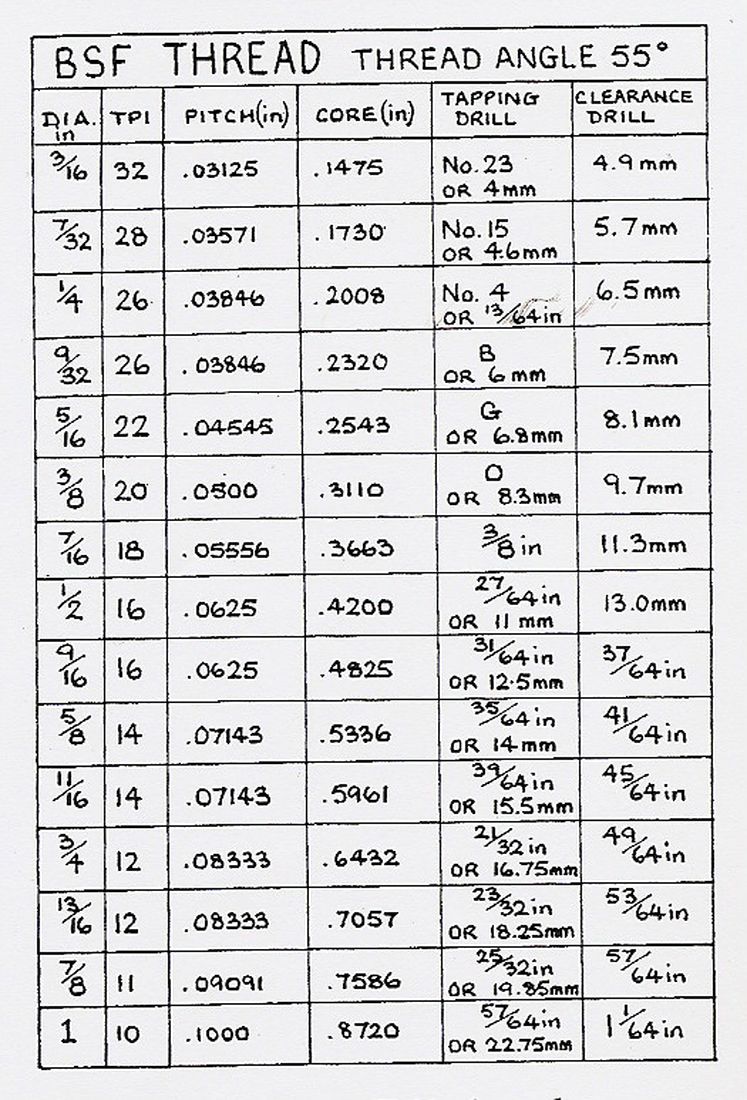 BSF THREAD THREAD ANGLE 55°
DIA. in TPI PITCH(in) CORE(in) TAPPING DRILL CLEARANCE DRILL
3/16 32 .03125 .1475 No.23 OR 4mm 4.9mm
7/32 28 .03571 .1730 No.15 OR 4.6mm 5.7mm
1/4 26 .03846 .2008 No. 4 OR 13/64in 6.5mm
9/32 26 .03846 .2320 B OR 6mm 7.5mm
5/16 22 .04545 .2543 G OR 6.8mm 8.1mm
3/8 20 .0500 .3110 O OR 8.3mm 9.7mm
7/16 18 .05556 .3663 3/8in 11.3mm
1/2 16 .0625 .4200 27/64in OR 11mm 13.0mm
9/16 16 .0625 .4825 31/64in OR 12.5mm 37/64in
5/8 14 .07143 .5336 35/64in OR 14mm 41/64in
11/16 14 .07143 .5961 39/64in OR 15.5mm 45/64in
3/4 12 .08333 .6432 21/32in OR 16.75mm 49/64in
13/16 12 .08333 .7057 23/32in OR 18.25mm 53/64in
7/8 11 .09091 .7586 25/32in OR 19.85mm 57/64in
1 10 .1000 .8720 57/64in OR 22.75mm 1 1/64in